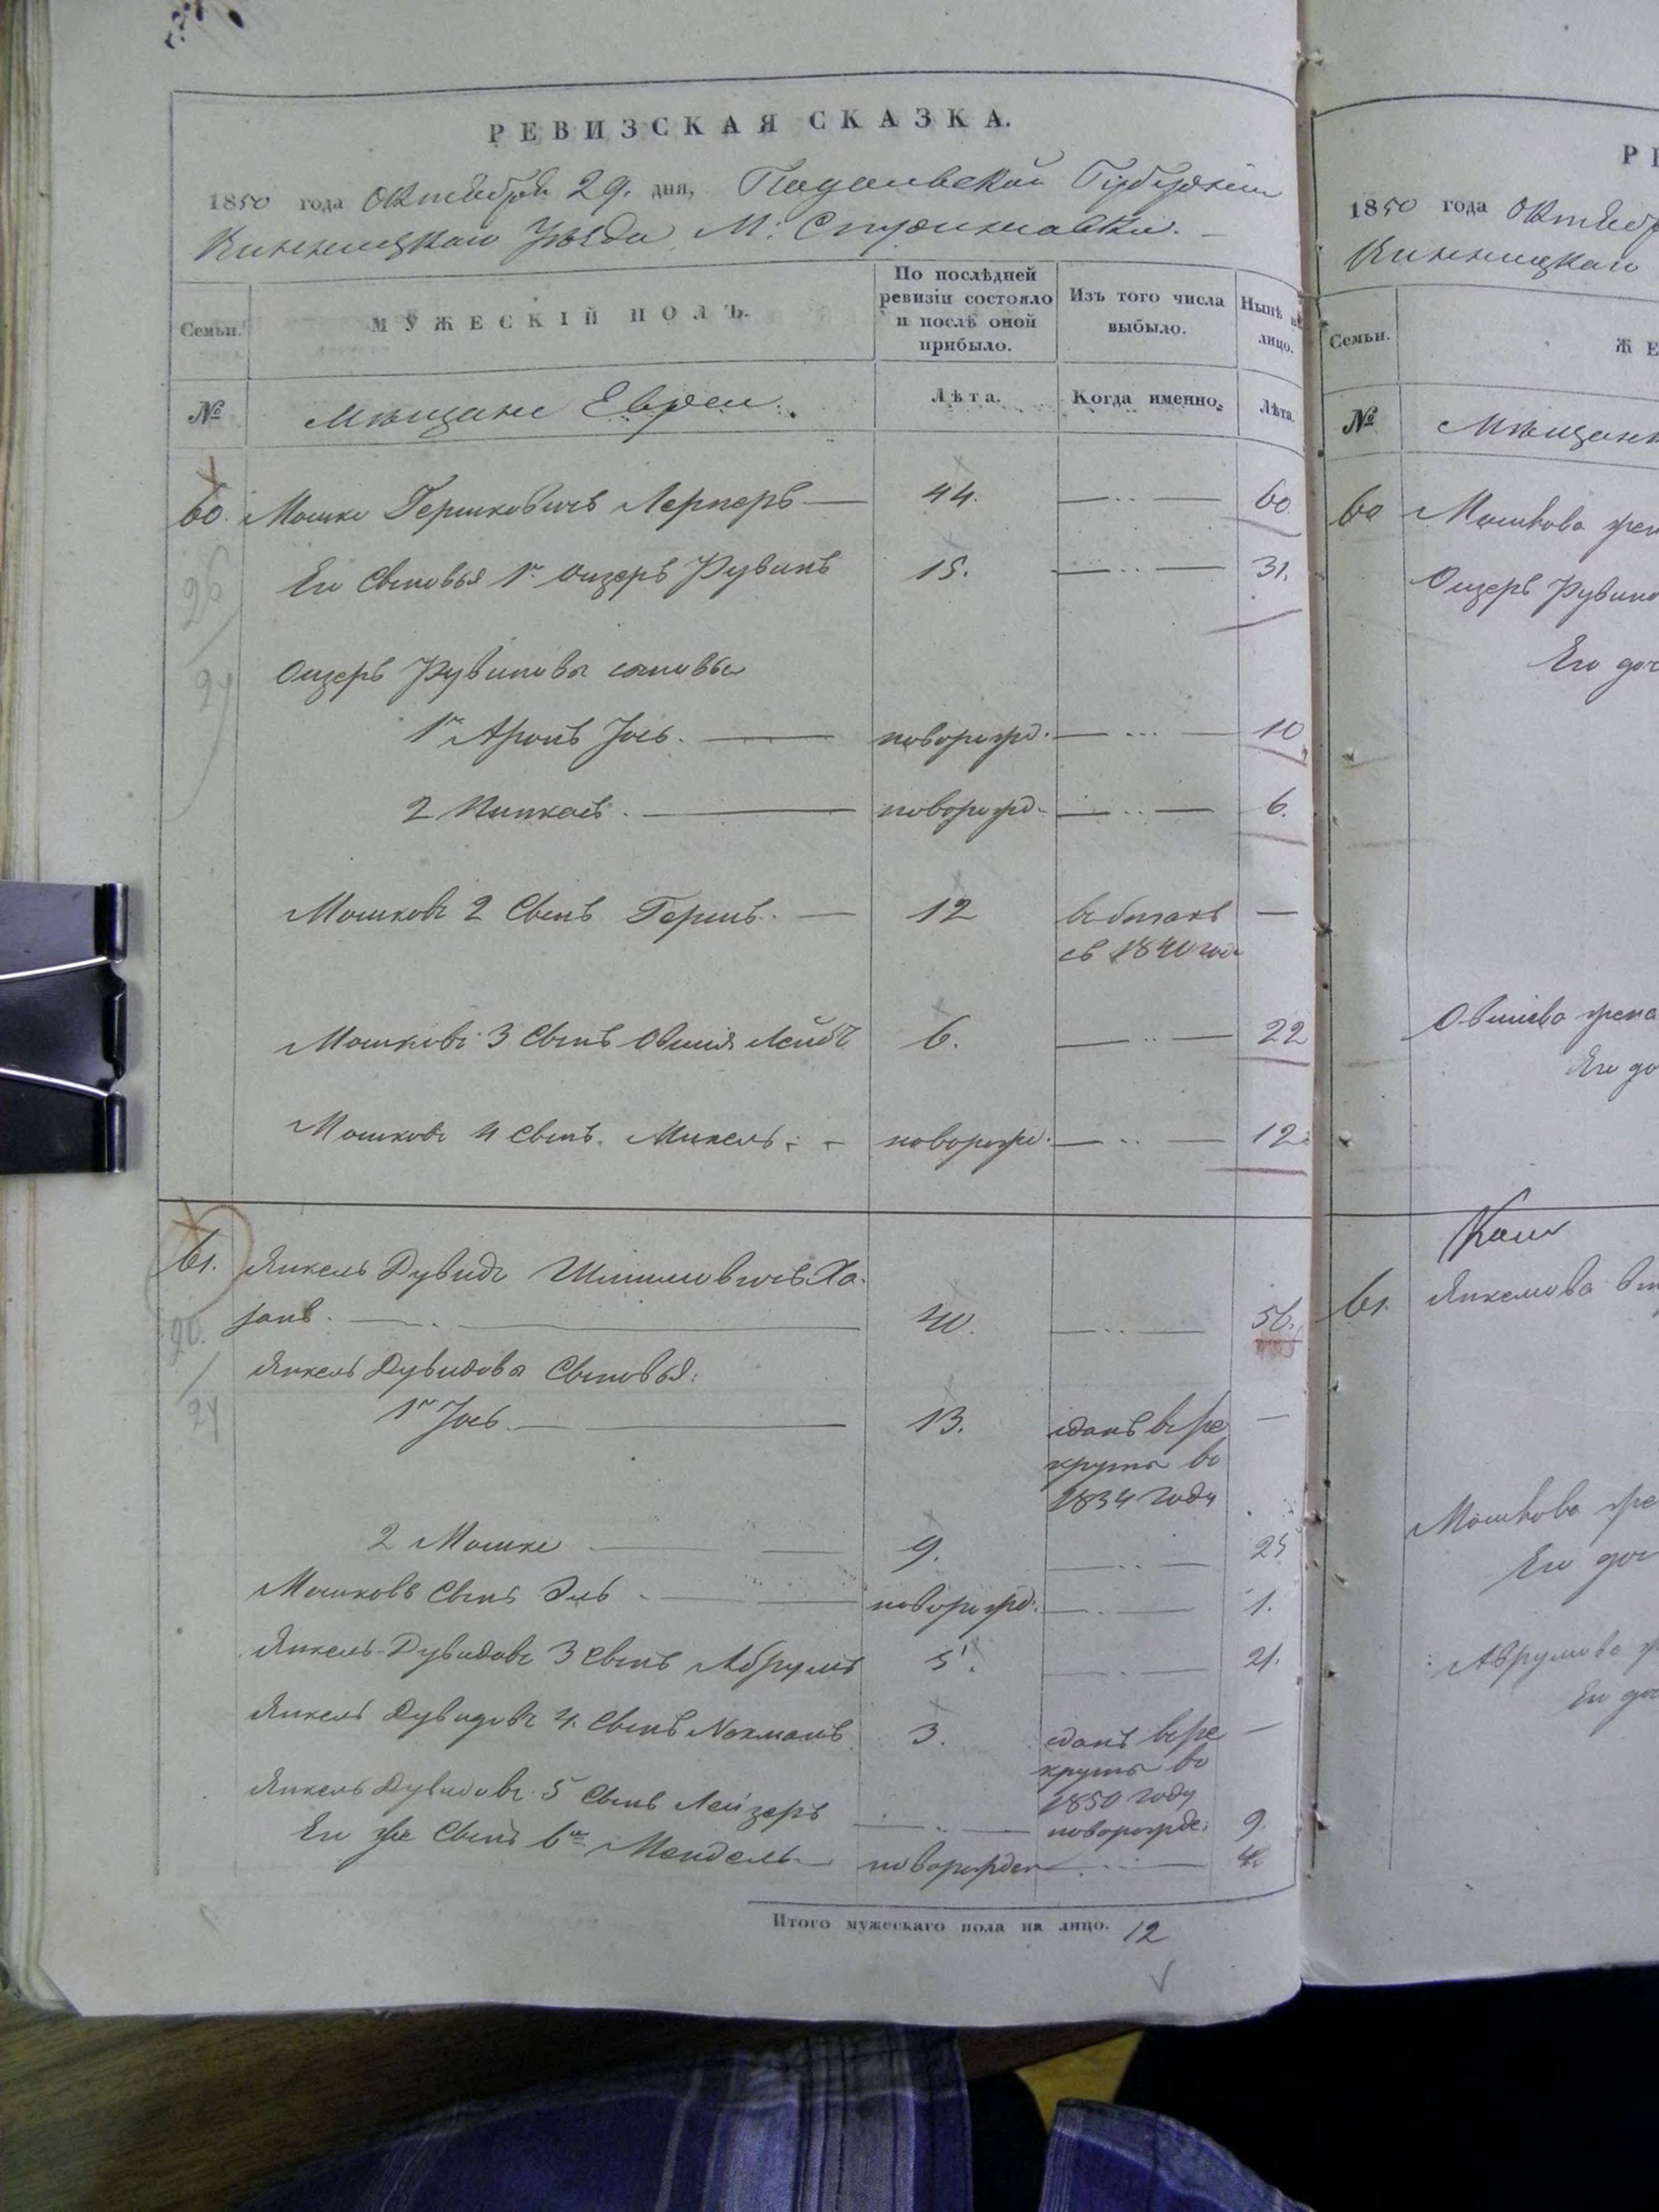 РЕВИЗСКАЯ СКАЗКА.
1850 года Октября 29. дня, Подольской Губернiи
Винницкаго Уѣзда М: Стрижавки.
Семьи.
МУЖЕСКІЙ ПОЛЪ.
По послѣдней ревизіи состояло и послѣ оной прибыло.
Изъ того числа выбыло.
Нынѣ на лицо.
№
Мѣщане Евреи.
Лѣта.
Когда именно.
Лѣта.
60. Мошко Гершковичъ Лернеръ — 44. — 60.
Его сыновья 1й Оизеръ Рувинъ 15. — 31.
Оизеръ Рувинова сыновья
1й Аронъ Іось. — новорожд. — 10
2 Пинкасъ. — новорожд. — 6.
Мошков 2 сынъ Гершъ. — 12 въ бѣгахъ —
съ 1840 года
Мошковъ 3 сынъ Овшія Лейбъ 6. — 22
Мошковъ 4 сынъ. Михель: - новорожд. — 12.
61. Янкель Дувидъ Шмилевичъ Ха-
занъ. — 40. — 56.
Янкель Дувидова сыновья:
1й Іось. — 13. сданъ въ ре —
круты во
1834 году
2 Мошко — 9. — 25
Мошковъ сынъ Эль — новорожд. — 1.
Янкель-Дувидовъ 3 сынъ Абрумъ 5. — 21.
Янкель Дувидовъ 4. сынъ Нохманъ 3. сданъ въ ре —
круты во
1850 году
Янкель Дувидовъ 5 сынъ Лейзеръ — новорожде. 9.
Его же сынъ 6й Мендель — новорожден — 4.
Итого мужескаго пола на лицо. 12
РЕ
1850 года Октяб
Винницкаго
Семьи.
ЖЕ
№
Мѣщан
60 Мошкова жен
Оизеръ Рувино
Его доч
Овшіева жена
Его до
61. Янкелиова вт
Мошкова же
Его доч
Аврумова ж
Его до